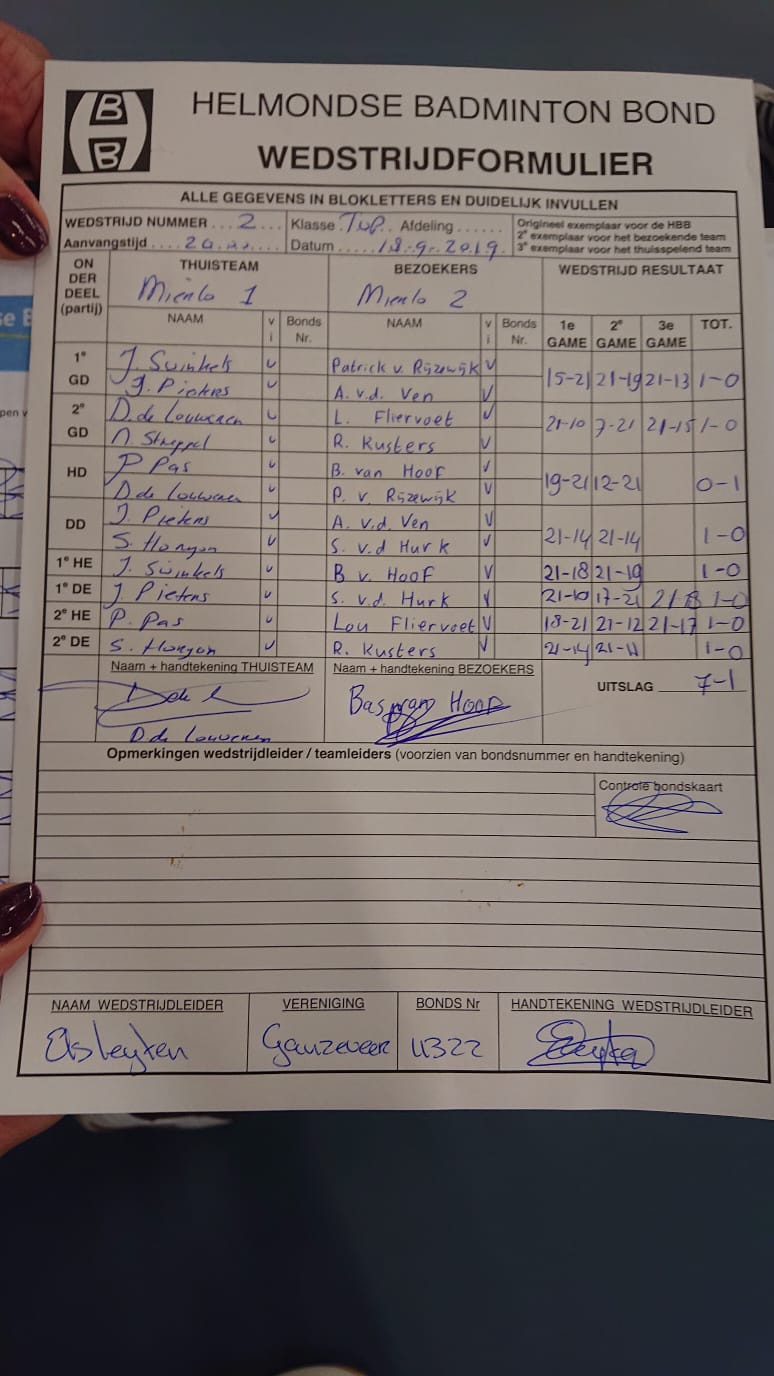 HELMONDSE BADMINTON BOND
WEDSTRIJDFORMULIER
ALLE GEGEVENS IN BLOKLETTERS EN DUIDELIJK INVULLEN
WEDSTRIJD NUMMER ... 2 .... Klasse TOP.. Afdeling ......
Origineel exemplaar voor de HBB
2e exemplaar voor het bezoekende team
3e exemplaar voor het thuisspelend team
Aanvangstijd .... Datum ..... 18-9-2019
ON DER DEEL (partij) THUISTEAM BEZOEKERS WEDSTRIJD RESULTAAT
Mierlo 1 Mierlo 2
NAAM v i Bonds Nr. NAAM v i Bonds Nr. 1e GAME 2e GAME 3e GAME TOT.
1e GD J. Swinkels v Patrick v. Rijzewijk v 15-21 21-19 21-13 1-0
J. Pieters v A. v.d. Ven v
2e GD D. de Louweren v L. Fliervoet v 21-10 7-21 21-15 1-0
v R. Kusters v
HD P Pas v B. van Hoof v 19-21 12-21 0-1
D. de Louweren v P. v. Rijzewijk v
DD J. Pieters v A. v.d. Ven v 21-14 21-14 1-0
S. v S. v.d Hurk v
1e HE J. Swinkels v B v. Hoof v 21-18 21-19 1-0
1e DE J. Pieters v S. v.d. Hurk v 21-10 17-21 21-18 1-0
2e HE P. Pas v Lou Fliervoet v 18-21 21-12 21-17 1-0
2e DE S. v R. Kusters v 21-14 21-11 1-0
Naam + handtekening THUISTEAM Naam + handtekening BEZOEKERS
UITSLAG 7-1
Bas van Hoof
D. de Louweren
Opmerkingen wedstrijdleider / teamleiders (voorzien van bondsnummer en handtekening)
Controle bondskaart
NAAM WEDSTRIJDLEIDER VERENIGING BONDS Nr HANDTEKENING WEDSTRIJDLEIDER
Ganzeveer 4322